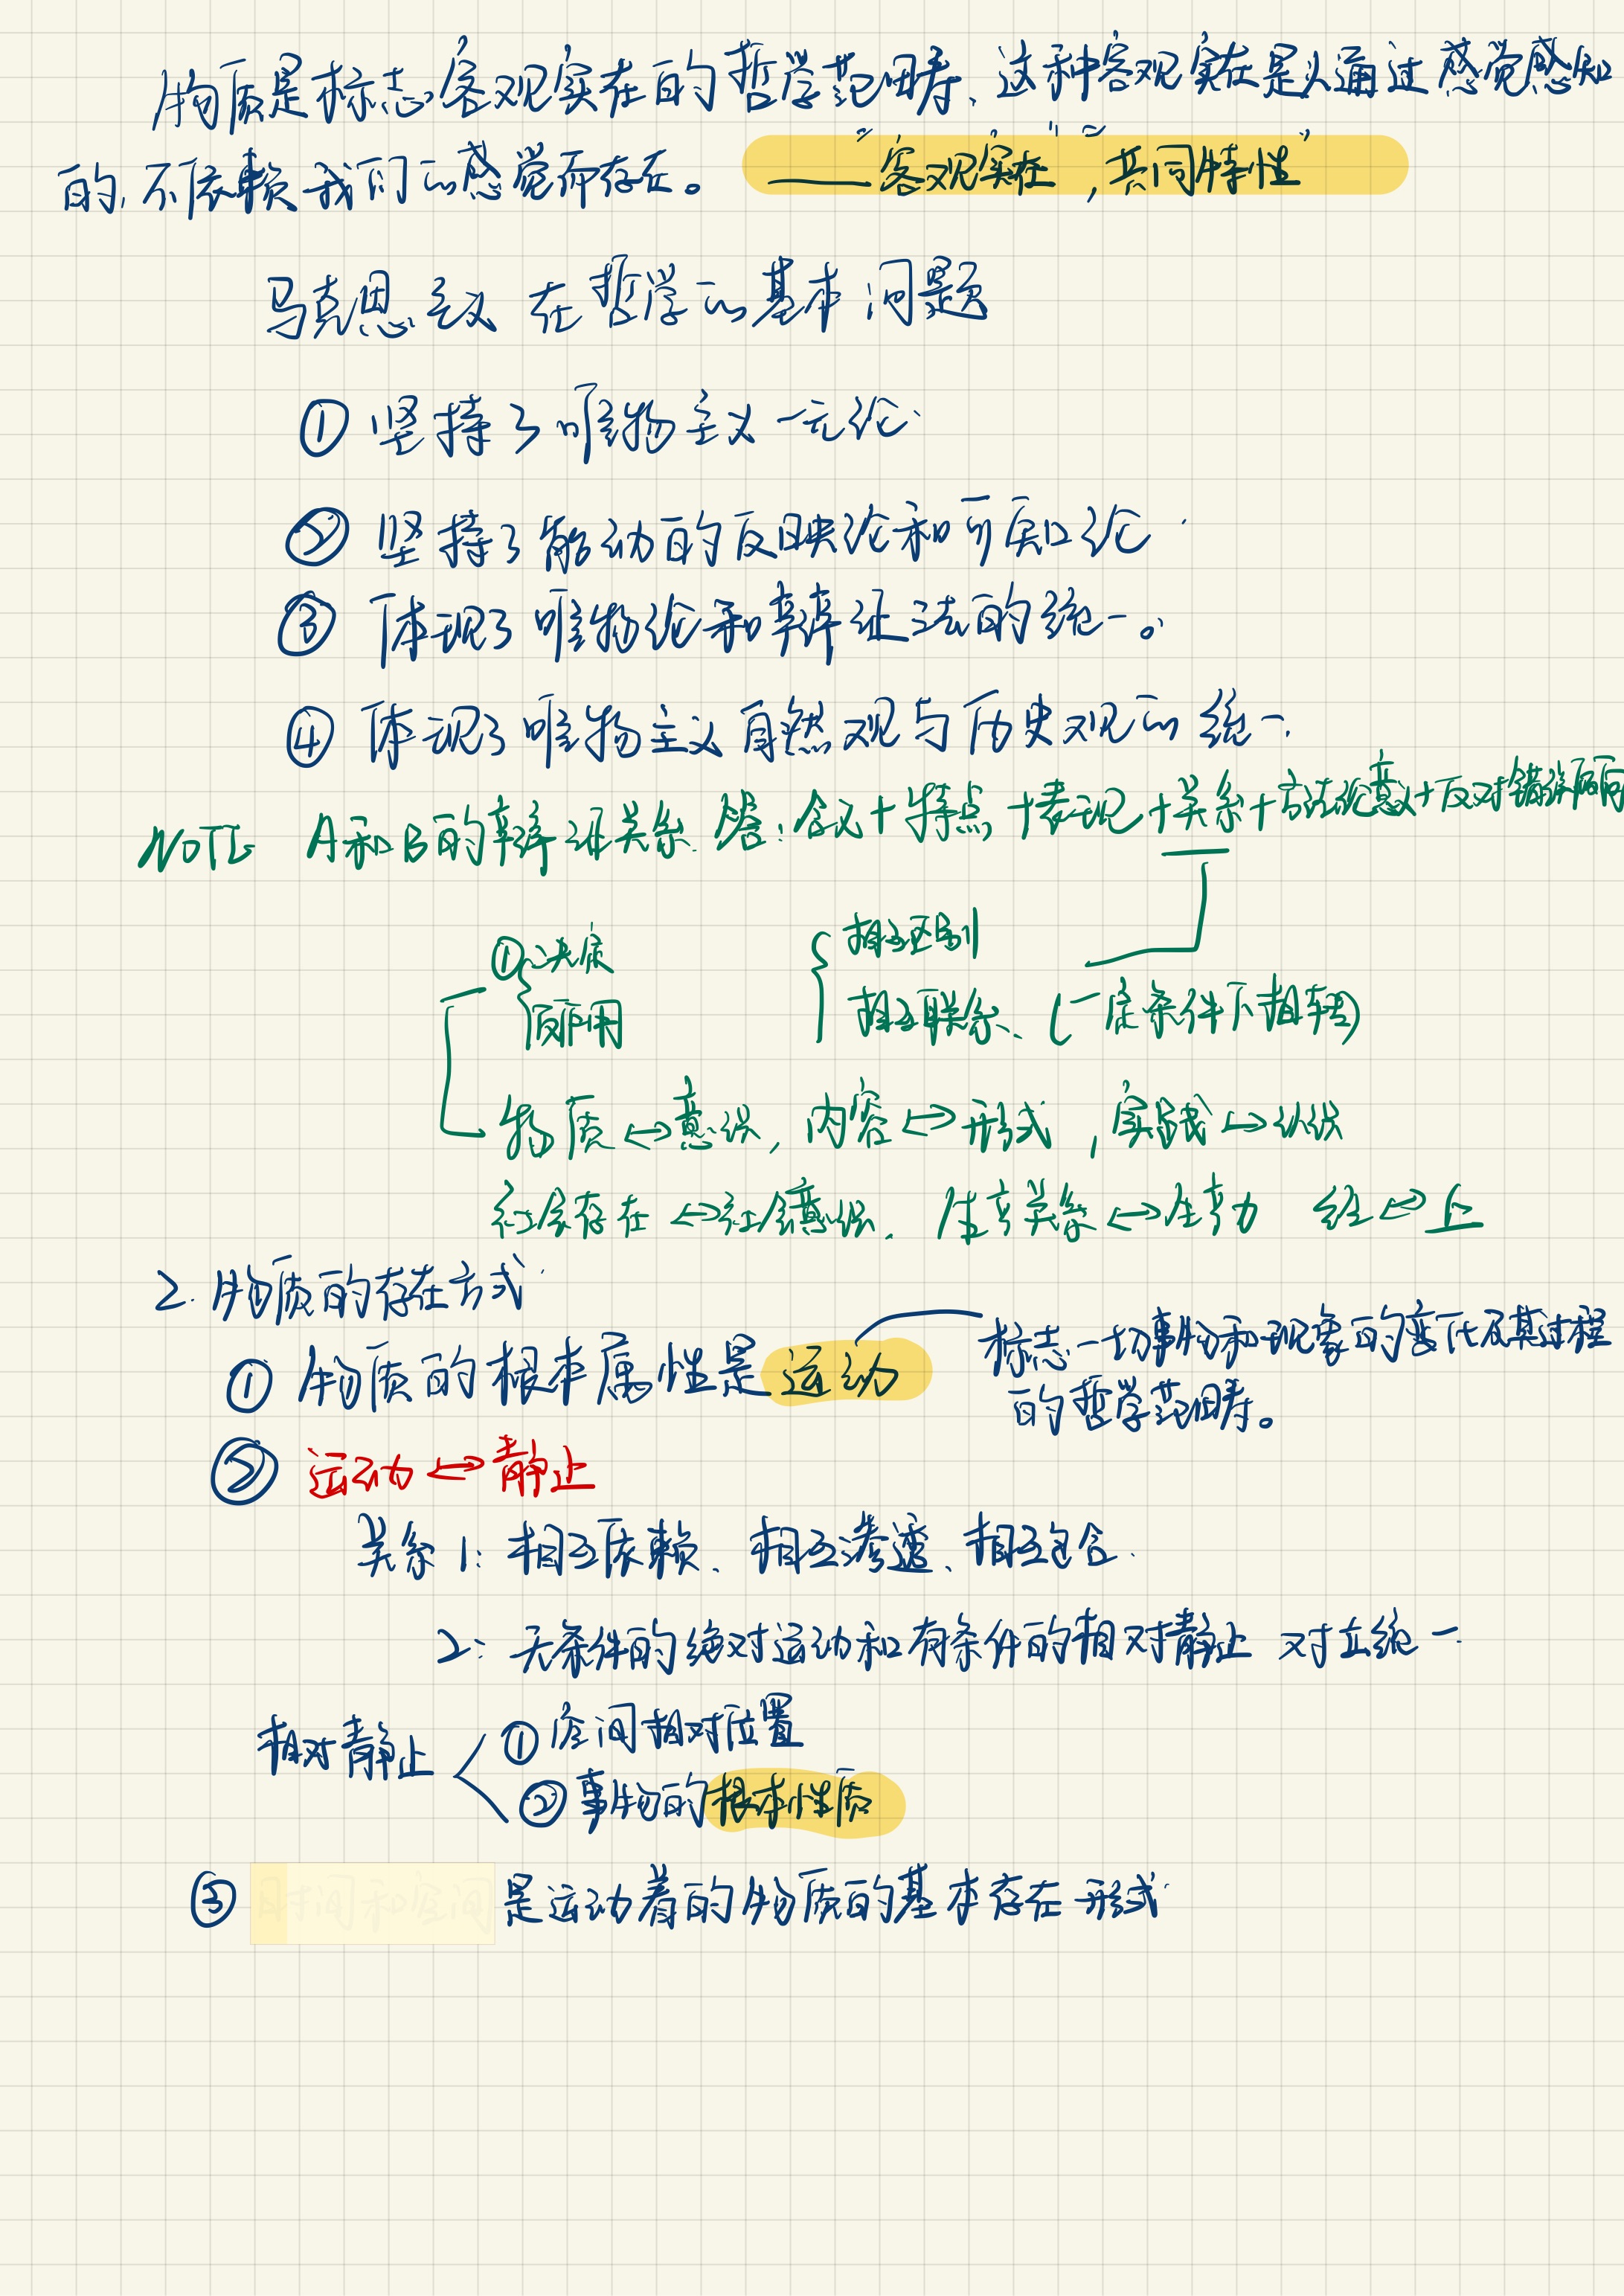 物质是标志客观实在的哲学范畴、这种客观实在是人通过感觉感知
的,不依赖我们的感觉而存在。 ——"客观实在","共同特性"
马克思主义在哲学的基本问题
① 坚持了唯物主义一元论
② 坚持了能动的反映论和可知论
③ 体现了唯物论和辩证法的统一。
④ 体现了唯物主义自然观与历史观的统一.
NOTE A和B的辩证关系. 答:含义+特点+表现+关系+方法论意义+反对错误
① 决定 { 相互区别
反作用 相互联系、(一定条件下相转)
物质↔意识, 内容↔形式, 实践↔认识
社会存在↔社会意识. 生产关系↔生产力 经↔上
2. 物质的存在方式
① 物质的根本属性是运动 标志一切事物和现象的变化及其过程
的哲学范畴。
② 运动↔静止
关系 1: 相互依赖、相互渗透、相互包含.
2: 无条件的绝对运动和有条件的相对静止 对立统一
相对静止 < ① 空间相对位置
② 事物的根本性质
③ 时间和空间是运动着的物质的基本存在形式